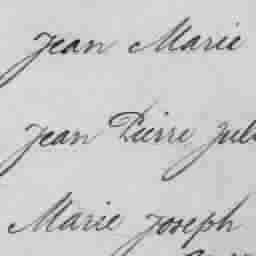 Jean Marie
Jean Pierre
Marie Joseph